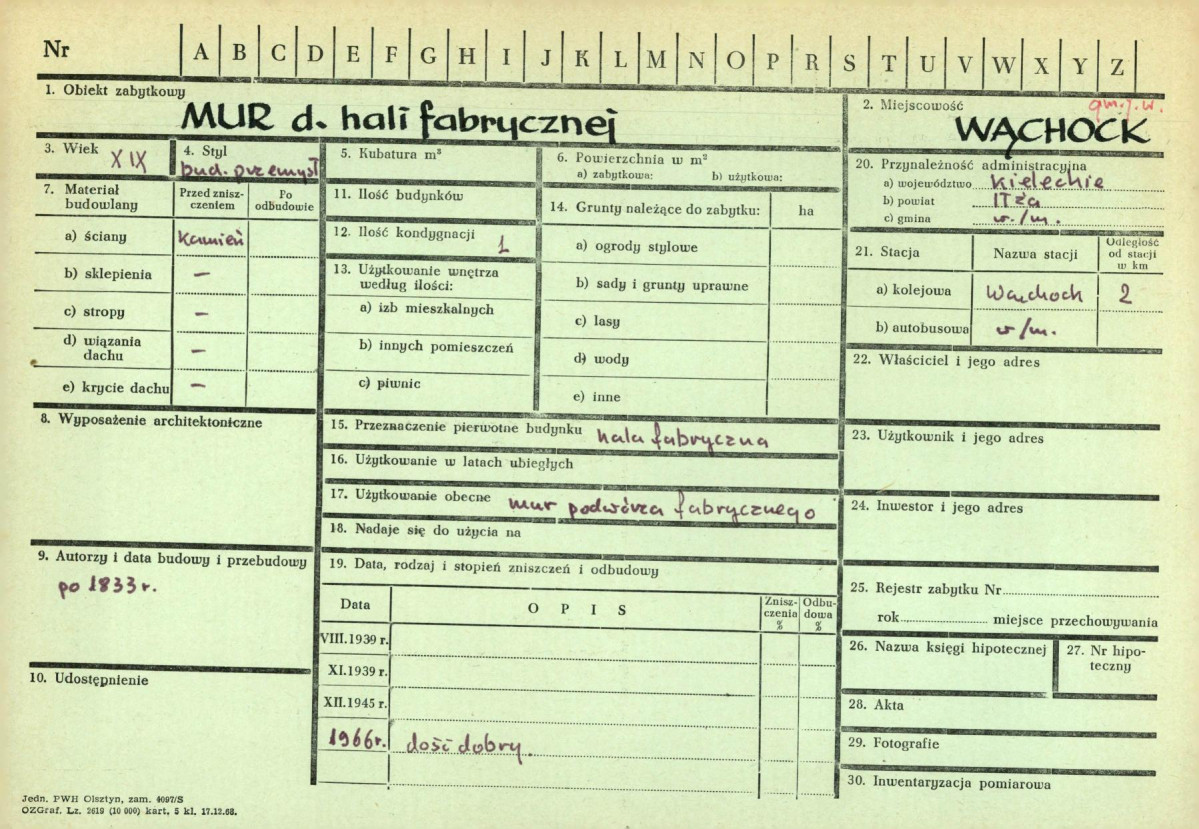 Nr A B C D E F G H I J K L M N O P R S T U V W X Y Z
1. Obiekt zabytkowy
MUR d. hali fabrycznej
2. Miejscowość
gm. j. w.
WĄCHOCK
3. Wiek XIX
4. Styl
bud. przemysł
5. Kubatura m³
6. Powierzchnia w m²
a) zabytkowa: b) użytkowa:
7. Materiał budowlany
Przed zniszczeniem
Po odbudowie
a) ściany kamień
b) sklepienia –
c) stropy –
d) wiązania dachu –
e) krycie dachu –
8. Wyposażenie architektoniczne
9. Autorzy i data budowy i przebudowy
po 1833 r.
10. Udostępnienie
11. Ilość budynków
12. Ilość kondygnacji 1
13. Użytkowanie wnętrza
według ilości:
a) izb mieszkalnych
b) innych pomieszczeń
c) piwnic
14. Grunty należące do zabytku: ha
a) ogrody stylowe
b) sady i grunty uprawne
c) lasy
d) wody
e) inne
15. Przeznaczenie pierwotne budynku hala fabryczna
16. Użytkowanie w latach ubiegłych
17. Użytkowanie obecne mur podwórza fabrycznego
18. Nadaje się do użycia na
19. Data, rodzaj i stopień zniszczeń i odbudowy
Data OPIS Zniszczenia % Odbudowa %
VIII.1939 r.
XI.1939 r.
XII.1945 r.
1966 r. dość dobry
20. Przynależność administracyjna
a) województwo kieleckie
b) powiat Iłża
c) gmina w/m.
21. Stacja Nazwa stacji Odległość od stacji w km
a) kolejowa Wąchock 2
b) autobusowa w/m.
22. Właściciel i jego adres
23. Użytkownik i jego adres
24. Inwestor i jego adres
25. Rejestr zabytku Nr
rok miejsce przechowywania
26. Nazwa księgi hipotecznej
27. Nr hipoteczny
28. Akta
29. Fotografie
30. Inwentaryzacja pomiarowa
Jedn. PWH Olsztyn, zam. 4097/S
OZGraf. Lz. 2619 (10 000) kart. 5 kl. 17.12.68.